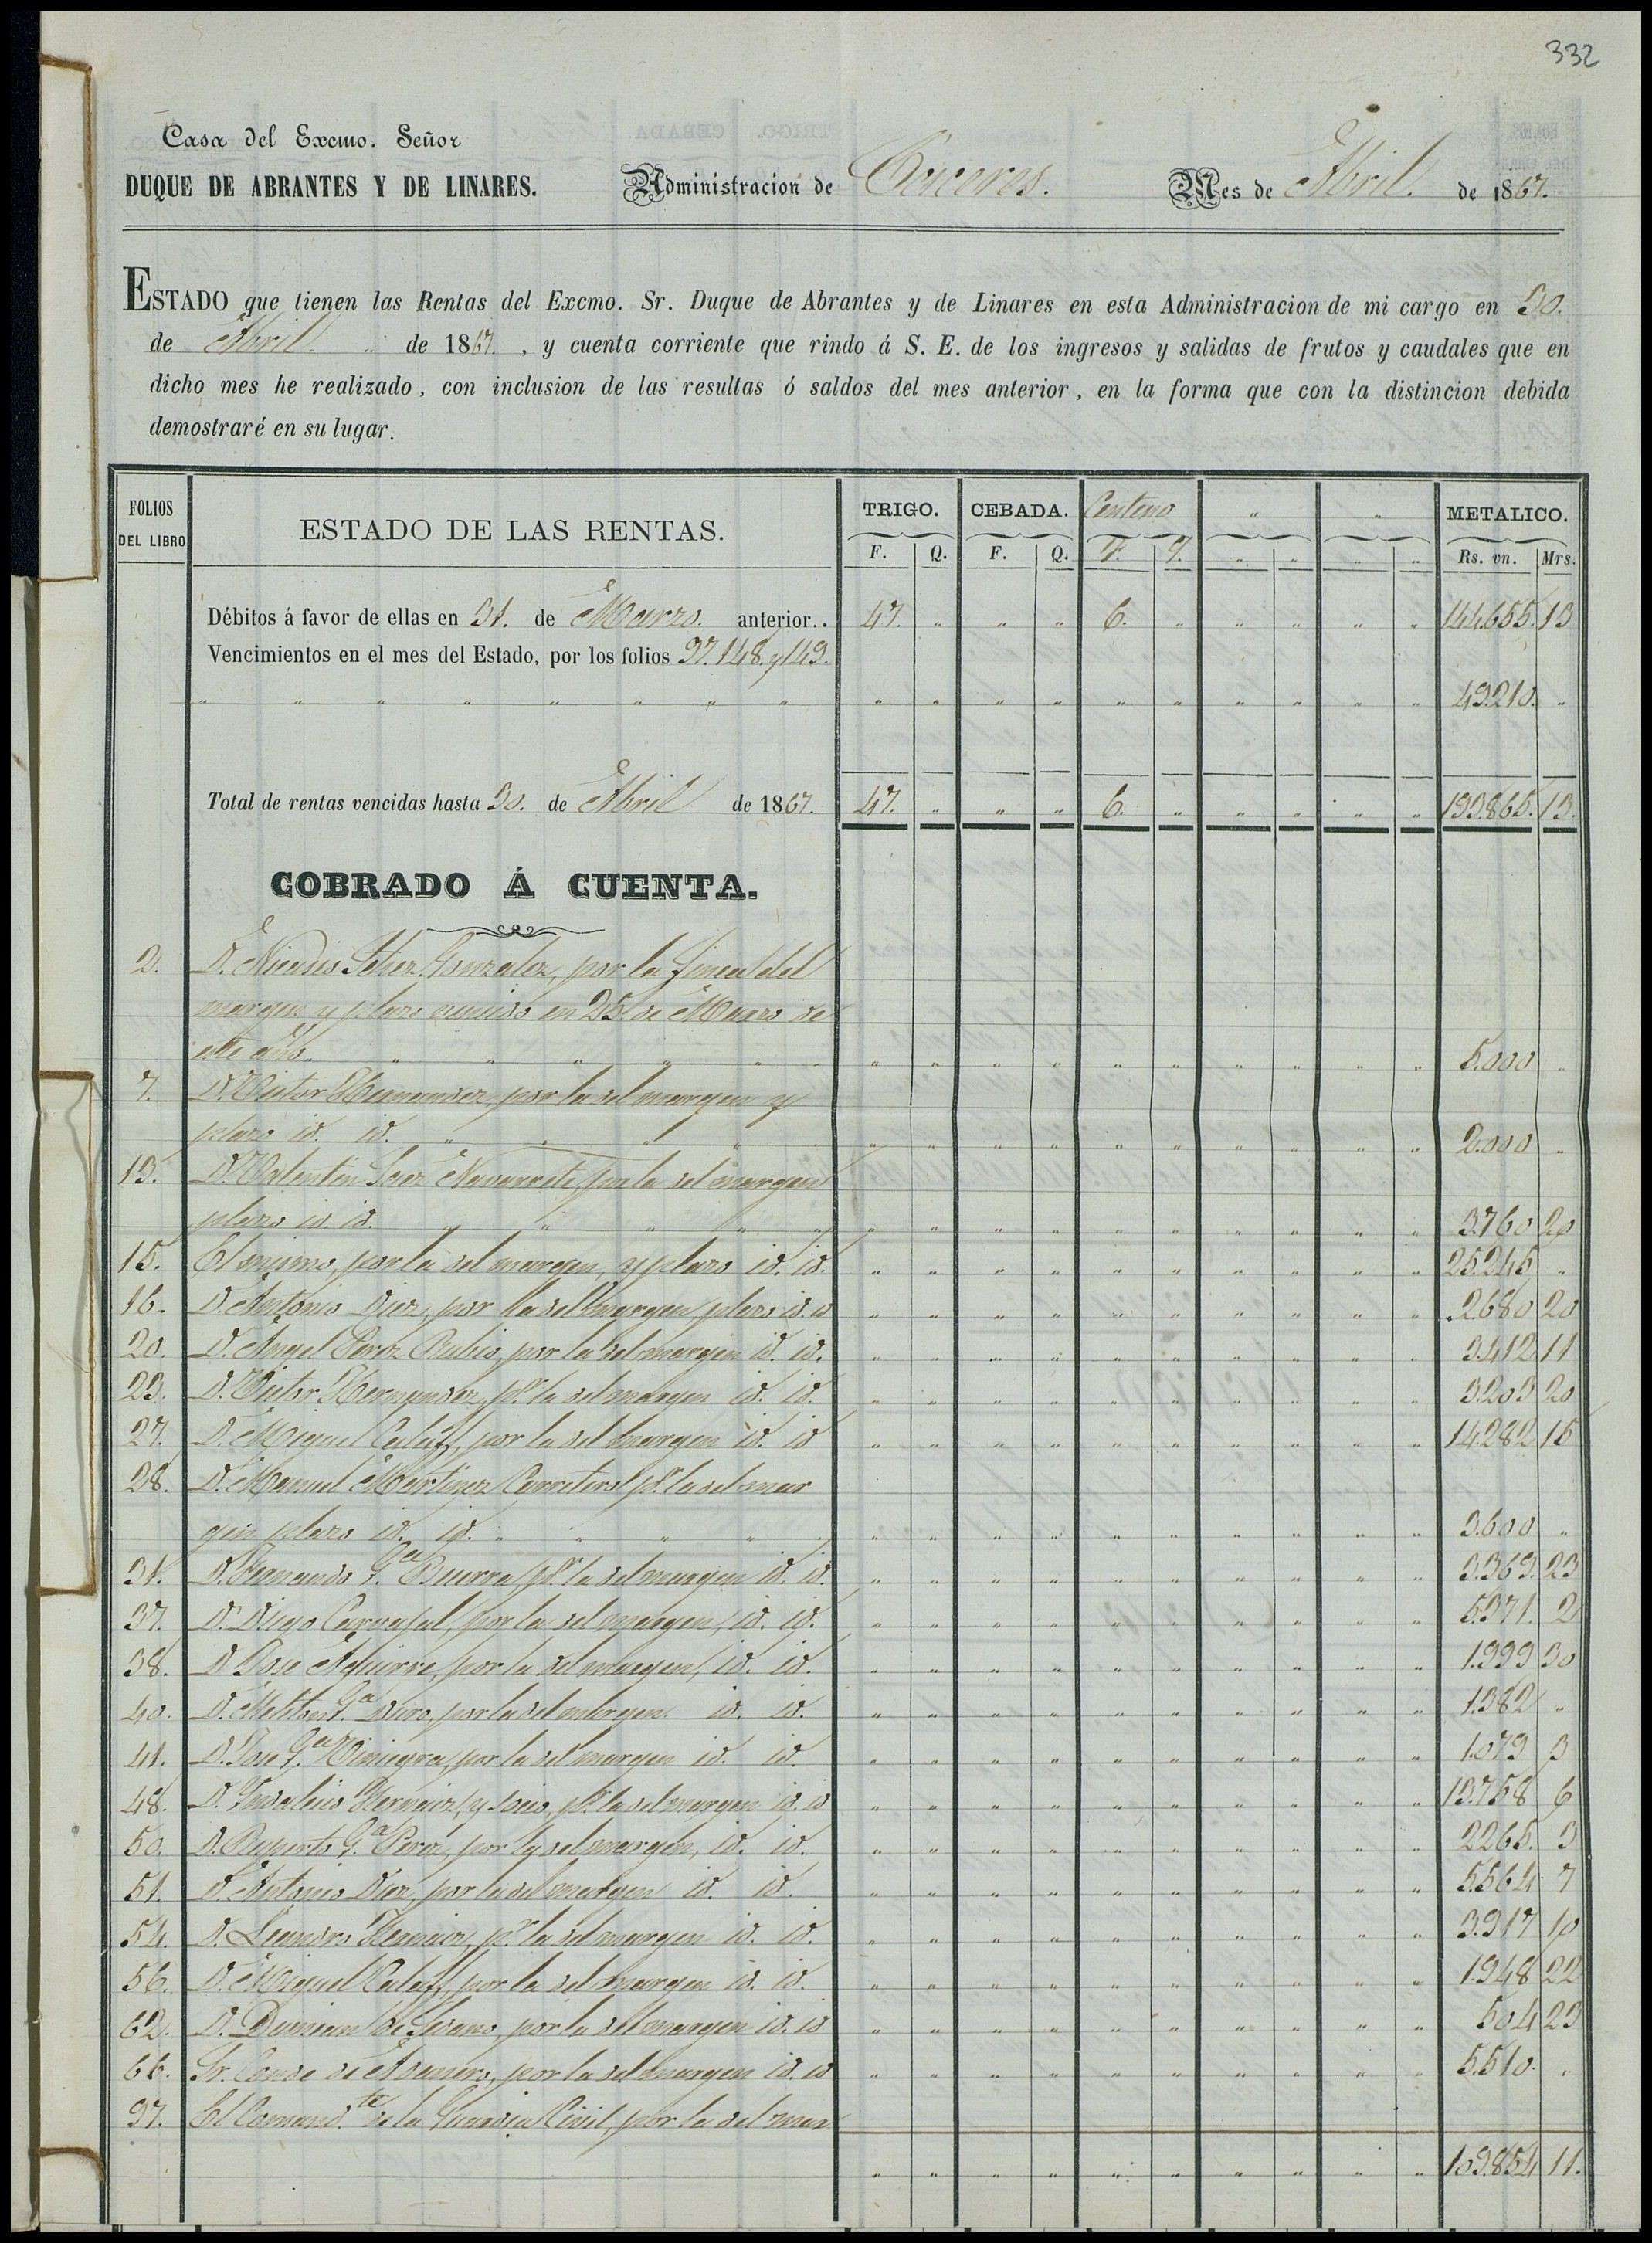 332
Casa del Excmo. Señor
DUQUE DE ABRANTES Y DE LINARES. Administracion de Cáceres. Mes de Abril. de 1867.
ESTADO que tienen las Rentas del Excmo. Sr. Duque de Abrantes y de Linares en esta Administracion de mi cargo en 30.
de Abril. „ de 1867. , y cuenta corriente que rindo á S. E. de los ingresos y salidas de frutos y caudales que en
dicho mes he realizado, con inclusion de las resultas ó saldos del mes anterior, en la forma que con la distincion debida
demostraré en su lugar.
FOLIOS DEL LIBRO ESTADO DE LAS RENTAS. TRIGO. CEBADA. Centeno „ „ METALICO.
F. Q. F. Q. F. Q. „ „ „ „ Rs. vn. Mrs.
Débitos á favor de ellas en 31. de Marzo. anterior.. 47. „ „ „ 6. „ „ „ „ „ 144.655. 13
Vencimientos en el mes del Estado, por los folios 37. 148. y 149.
„ „ „ „ „ „ „ „ „ „ „ „ „ „ „ „ „ „ 49.210. „
Total de rentas vencidas hasta 30. de Abril de 1867. 47. „ „ „ 6. „ „ „ „ „ 193.865. 13.
COBRADO Á CUENTA.
2. D. Nicasio Gonzalez, por la finca del
margen y plazo cumplido en 25. de Marzo de
este año. „ „ „ „ „ „ 5.000 „
7. D. Victor Hernandez, por la del margen y
plazo id. id. „ „ „ „ 2.000 „
13. D. Valentin Saez Navarrete, por la del margen
plazo id. id. „ „ „ „ „ 3.760 20
15. El mismo, por la del margen, y plazo id. id. 25.245 „
16. D. Antonio Diez, por la del margen plazo id. id 2.680 20
20. D. Angel Perez Rubio, por la del margen id. id. 3.412 11
23. D. Victor Hernandez, pr. la del margen id. id. 3.203 20
27. D. Miguel Calaff, por la del margen id. id 14.282 15
28. D. Manuel Martinez Carretero pr. la del mar
gen plazo id. id. „ „ „ „ „ 3.600 „
31. D. Fernando Ga. Becerra pr. la del margen id. id. 3.369. 23
37. D. Diego Carvajal, por la del margen, id. id. 5.371. 2
38. D. Jose Aguirre, por la del margen, id. id. 1.999 30
40. D. Meliton Ga. Duro, por la del margen id. id. 1.382 „
41. D. Jose Ga. Viniegra, por la del margen id. id. 1.079 3
48. D. Indalecio Hernaiz, y socio, pr. la del margen id. id 13.758 6
50. D. Ruperto Ga. Perez, por la del margen, id. id. 2.265. 3
51. D. Antonio Diez, por la del margen id. id. 5.564 7
54. D. Leandro Hernaiz, pr. la del margen id. id. 3.917 10
56. D. Miguel Calaff, por la del margen id. id. 1.948 22
62. D. Damian de, por la del margen id. id 504 23
66. Sr. Conde de, por la del margen id. id 5.510. „
97. El Comandte. de la Guardia Civil, por la del mar
„ „ „ „ „ „ „ „ „ „ 109.854 11.